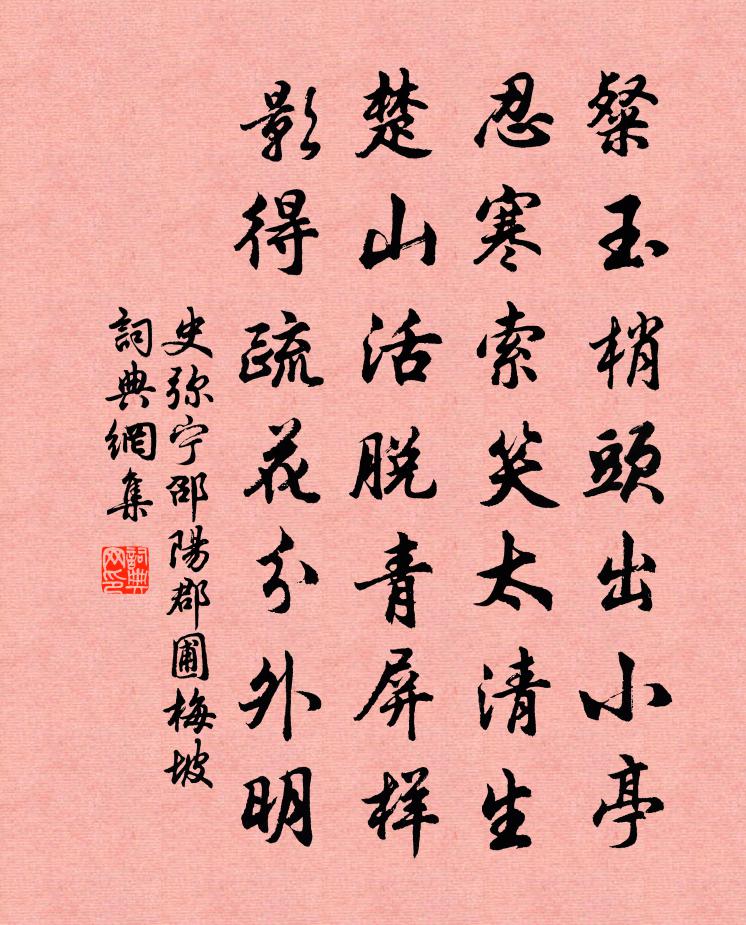 粲玉梢頭出小亭
忍寒索笑太清生
楚山活脫青屏樣
影得疏花分外明
史弥宁邵陽郡圃梅坡
詞典網集
詞典网印